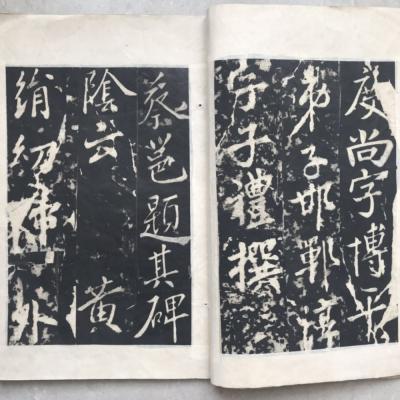 度尚字博平
弟子邯鄲淳
字子禮撰
蔡邕題其碑
陰云 黃
絹幼婦外